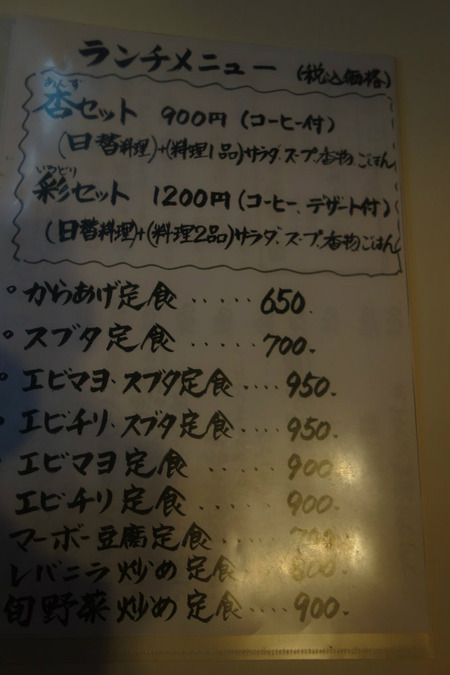 ランチメニュー (税込価格)
あんず
杏セット 900円(コーヒー付)
(日替料理)+(料理1品)サラダ、スープ、香物 ごはん
いろどり
彩セット 1200円(コーヒー、デザート付)
(日替料理)+(料理2品)サラダ、スープ、香物ごはん
からあげ定食 ..... 650.
スブタ定食 ..... 700.
エビマヨ、スブタ定食 .... 950.
エビチリ、スブタ定食 .... 950.
エビマヨ定食 ..... 900
エビチリ定食 ..... 900.
マーボー豆腐定食 ....
レバニラ炒め定食 ....
旬野菜炒め定食 .... 900.